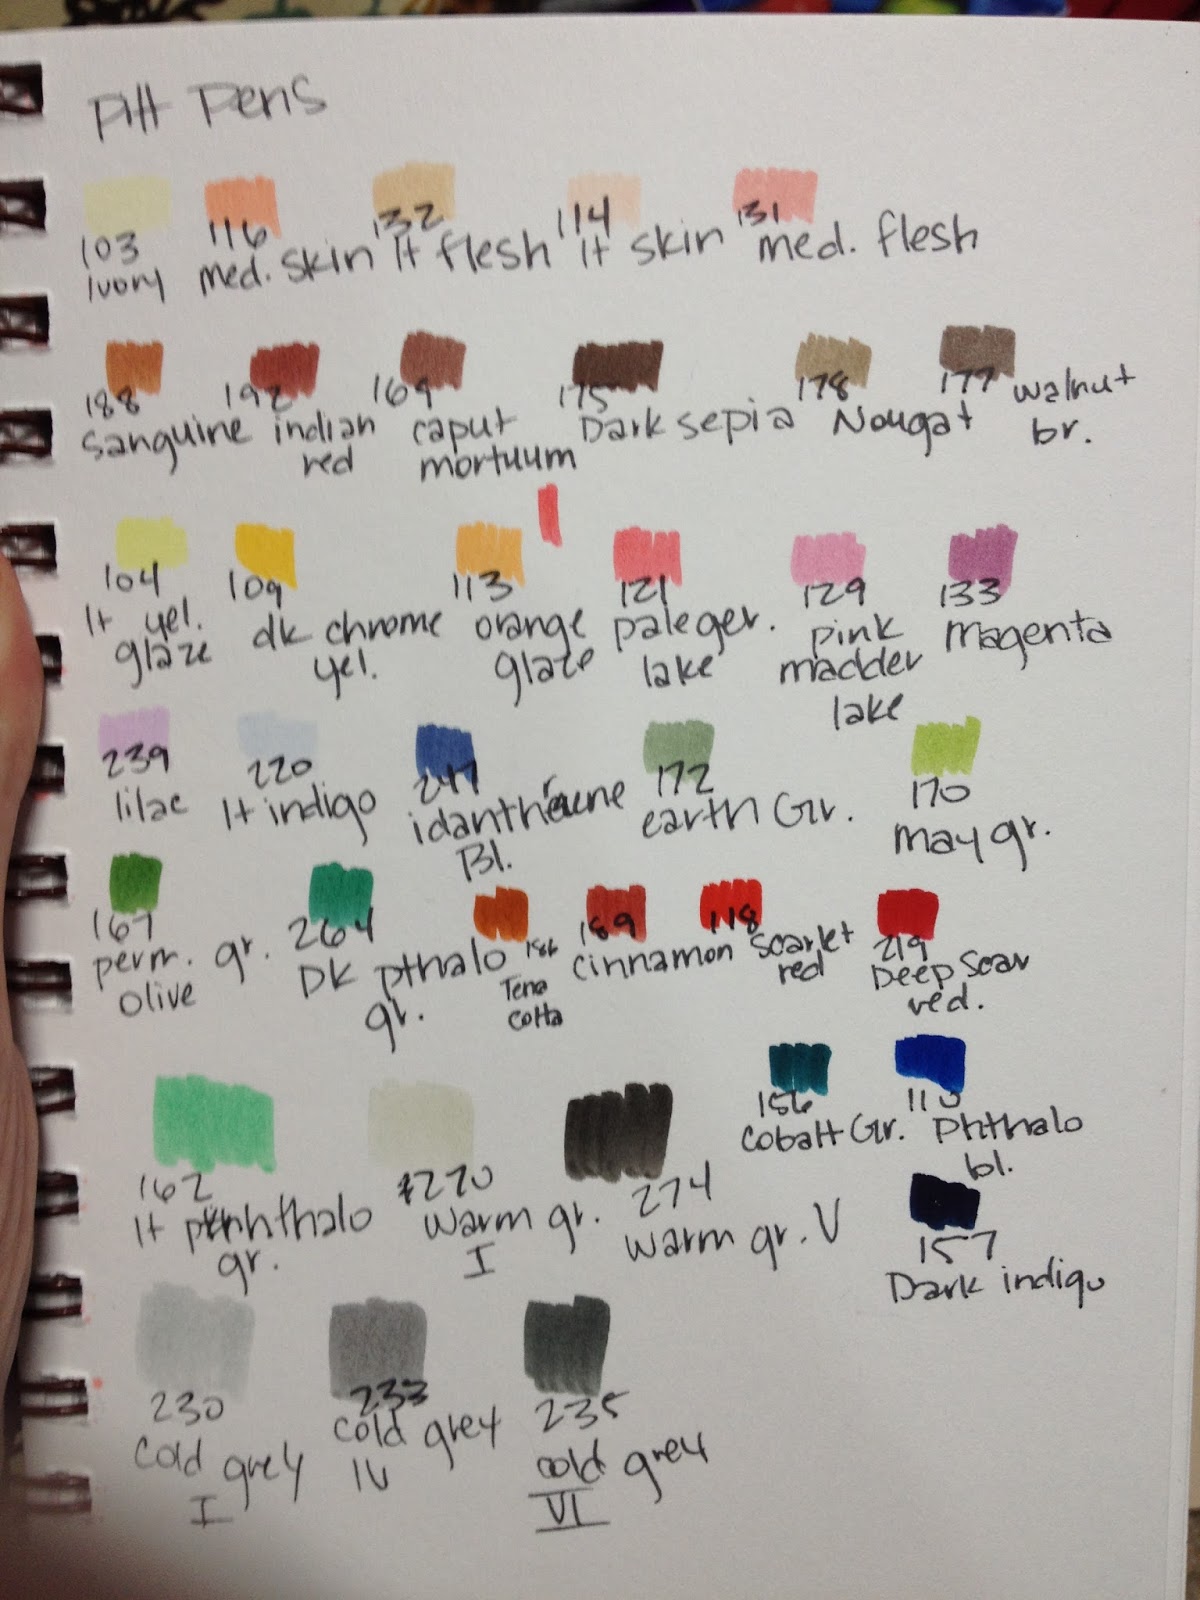 Pitt Pens
103 116 132 114 131
Ivory med. skin lt flesh lt skin med. flesh
188 192 169 175 178 177 walnut
Sanguine indian caput Dark sepia Nougat br.
red mortuum
104 109 113 121 129 133
lt yel. dk chrome orange pale ger. pink magenta
glaze yel. glaze lake madder
lake
239 220 247 172 170
lilac lt indigo idanthrene earth Gr. may gr.
Bl.
167 264 186 189 118 219
perm. gr. DK pthalo Terra cinnamon scarlet Deep Scar
olive gr. cotta red red.
156 110
cobalt Gr. Phthalo
bl.
162 270 274
lt phthalo warm gr. warm gr. V
gr. I
157
Dark indigo
230 233 235
cold grey cold grey cold grey
I IV VI